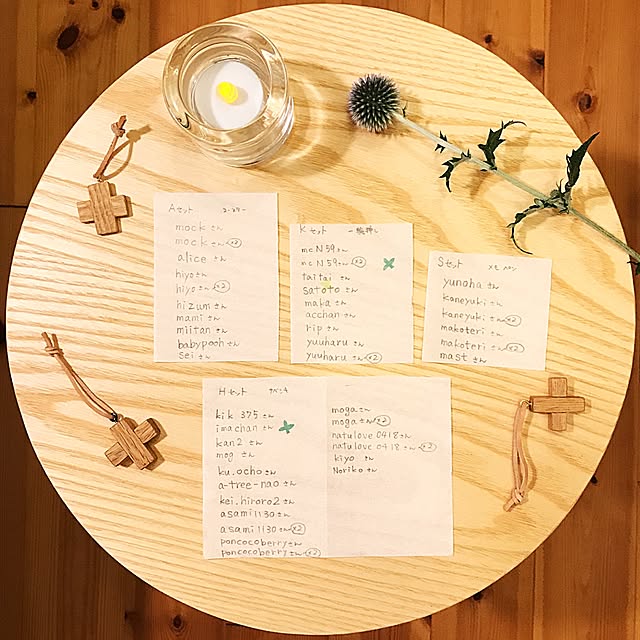 Aセット コースター
mockさん
mockさん×2
aliceさん
hiyoさん
hiyoさん×2
hizumさん
mamiさん
miitanさん
babypoohさん
seiさん
Kセット 一輪挿し
mcN59さん
mcN59さん×2
taitaiさん
satotoさん
makaさん
acchanさん
ripさん
yuuharuさん
yuuharuさん×2
Sセット
yunohaさん
kaneyukiさん
kaneyukiさん×2
makoteriさん
makoteriさん×2
mastさん
Hセット
kik 375さん
imachanさん
kan2さん
mogさん
ku.ochoさん
a-tree-naoさん
kei.hiroro2さん
asami1130さん
asami1130さん×2
poncocoberryさん
poncocoberryさん×2
mogaさん
mogaさん×2
natulove0418さん
natulove0418さん×2
kiyoさん
Norikoさん